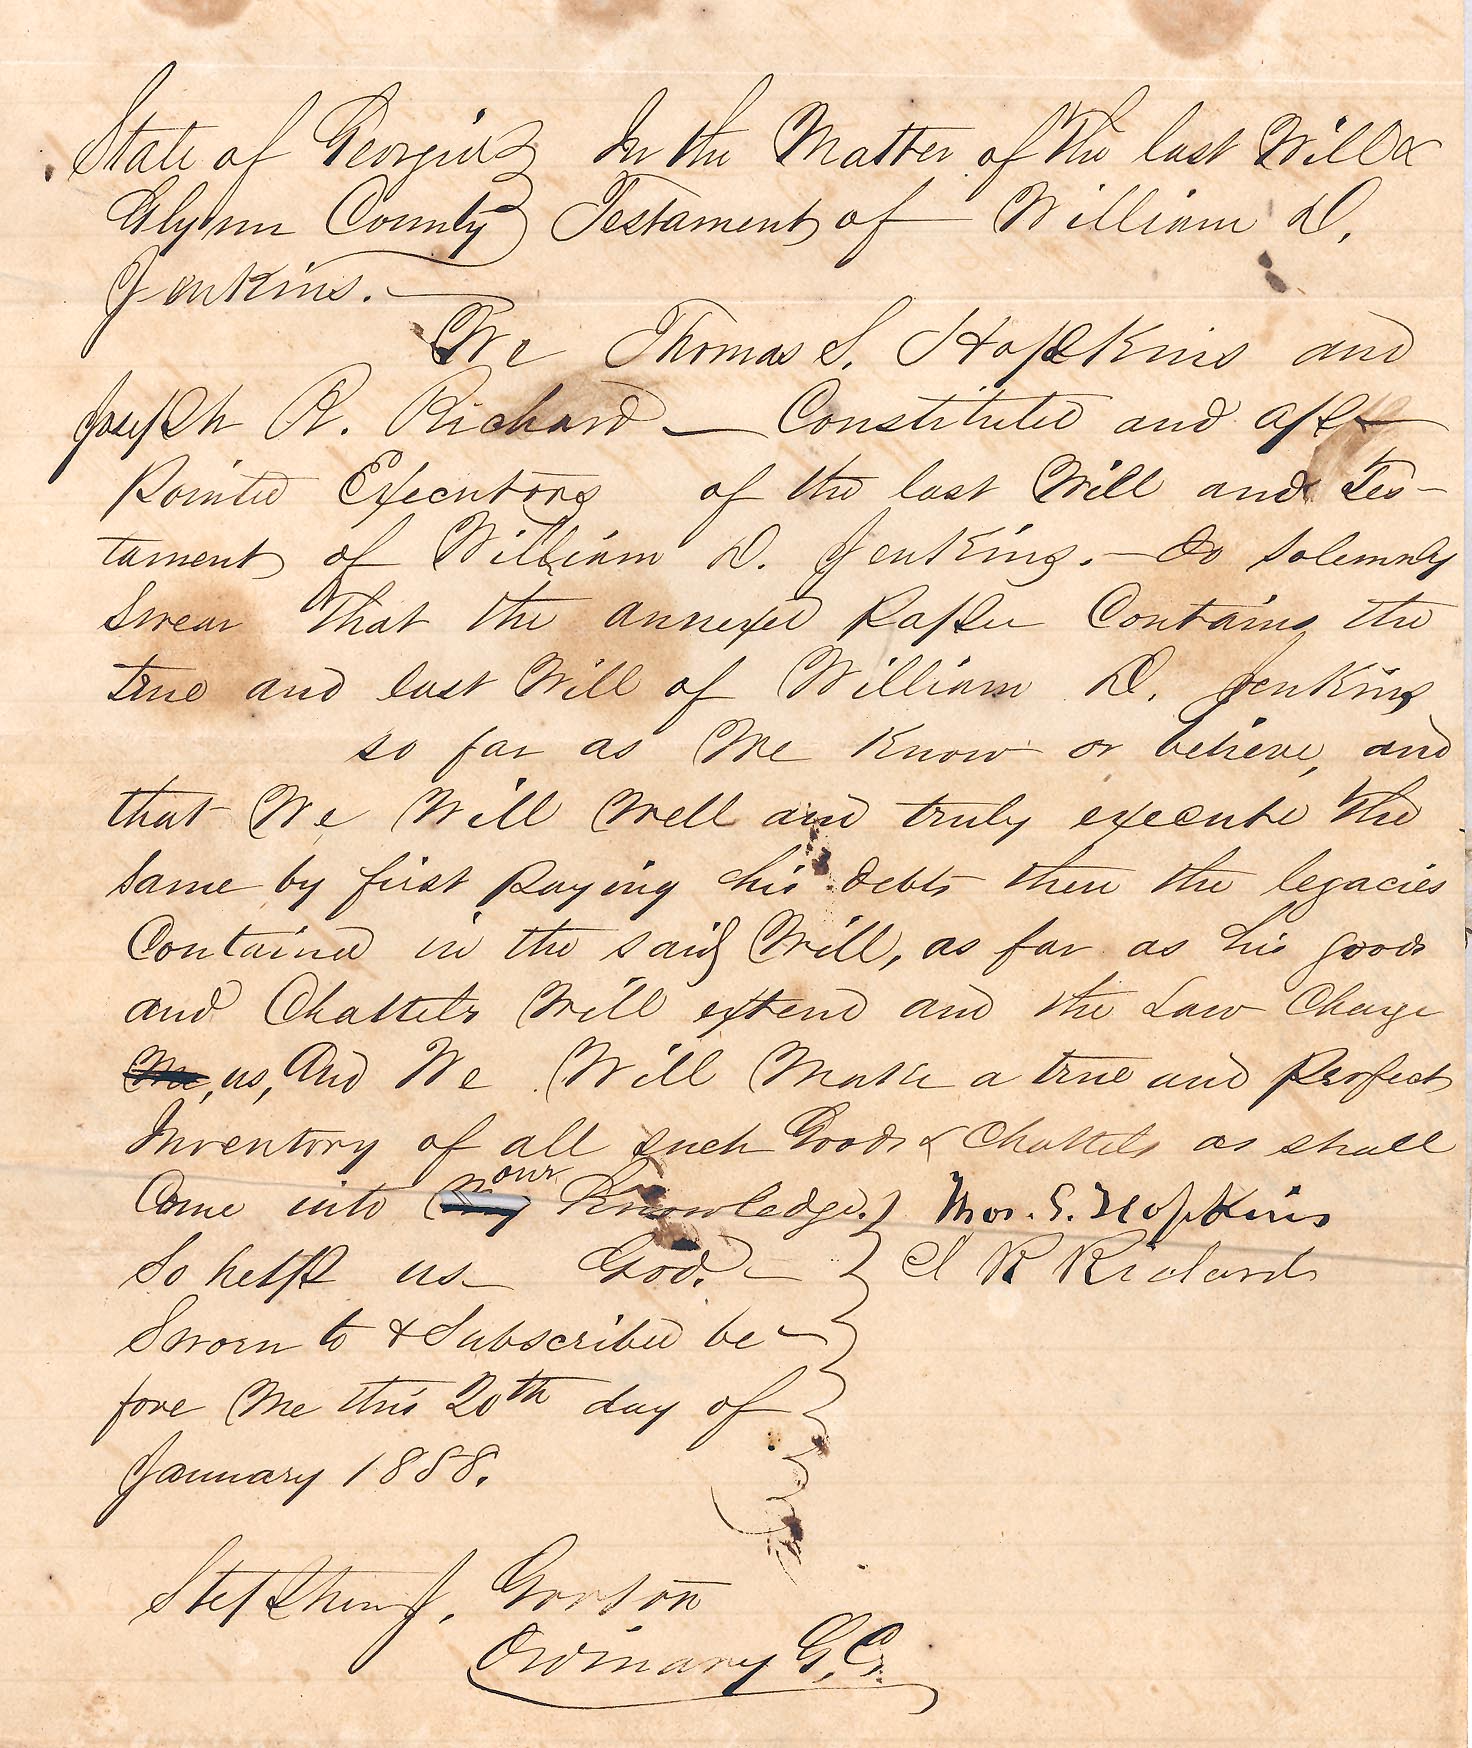 State of Georgia } In the Matter of the last Will &
Glynn County } Testament of William D.
Jenkins.
We Thomas S. Hopkins and
Joseph R. Richard — Constituted and ap-
pointed Executors of the last Will and Tes-
tament of William D. Jenkins. — do solemnly
Swear that the annexed paper Contains the
true and last Will of William D. Jenkins
so far as We Know or believe, and
that We Will Well and truly execute the
same by first paying his debts then the legacies
Contained in the said Will, as far as his goods
and Chattels Will extend and the Law Charge
Me, us, And We Will Make a true and perfect
Inventory of all such Goods & Chattels as shall
Come into My our Knowledge. } Thos. S. Hopkins
So help us God. — } J R Richards
Sworn to & Subscribed be-
fore Me this 20th day of
January 1888.
Stephen J. Gorton
Ordinary G.C.